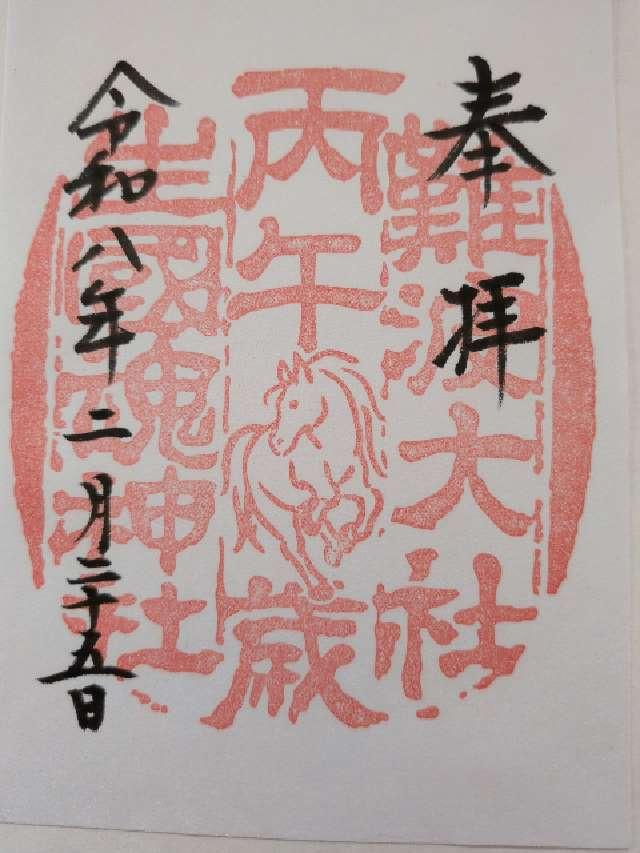 奉拝
難波大社
丙午
歳
生國魂神社
令和八年二月二十五日